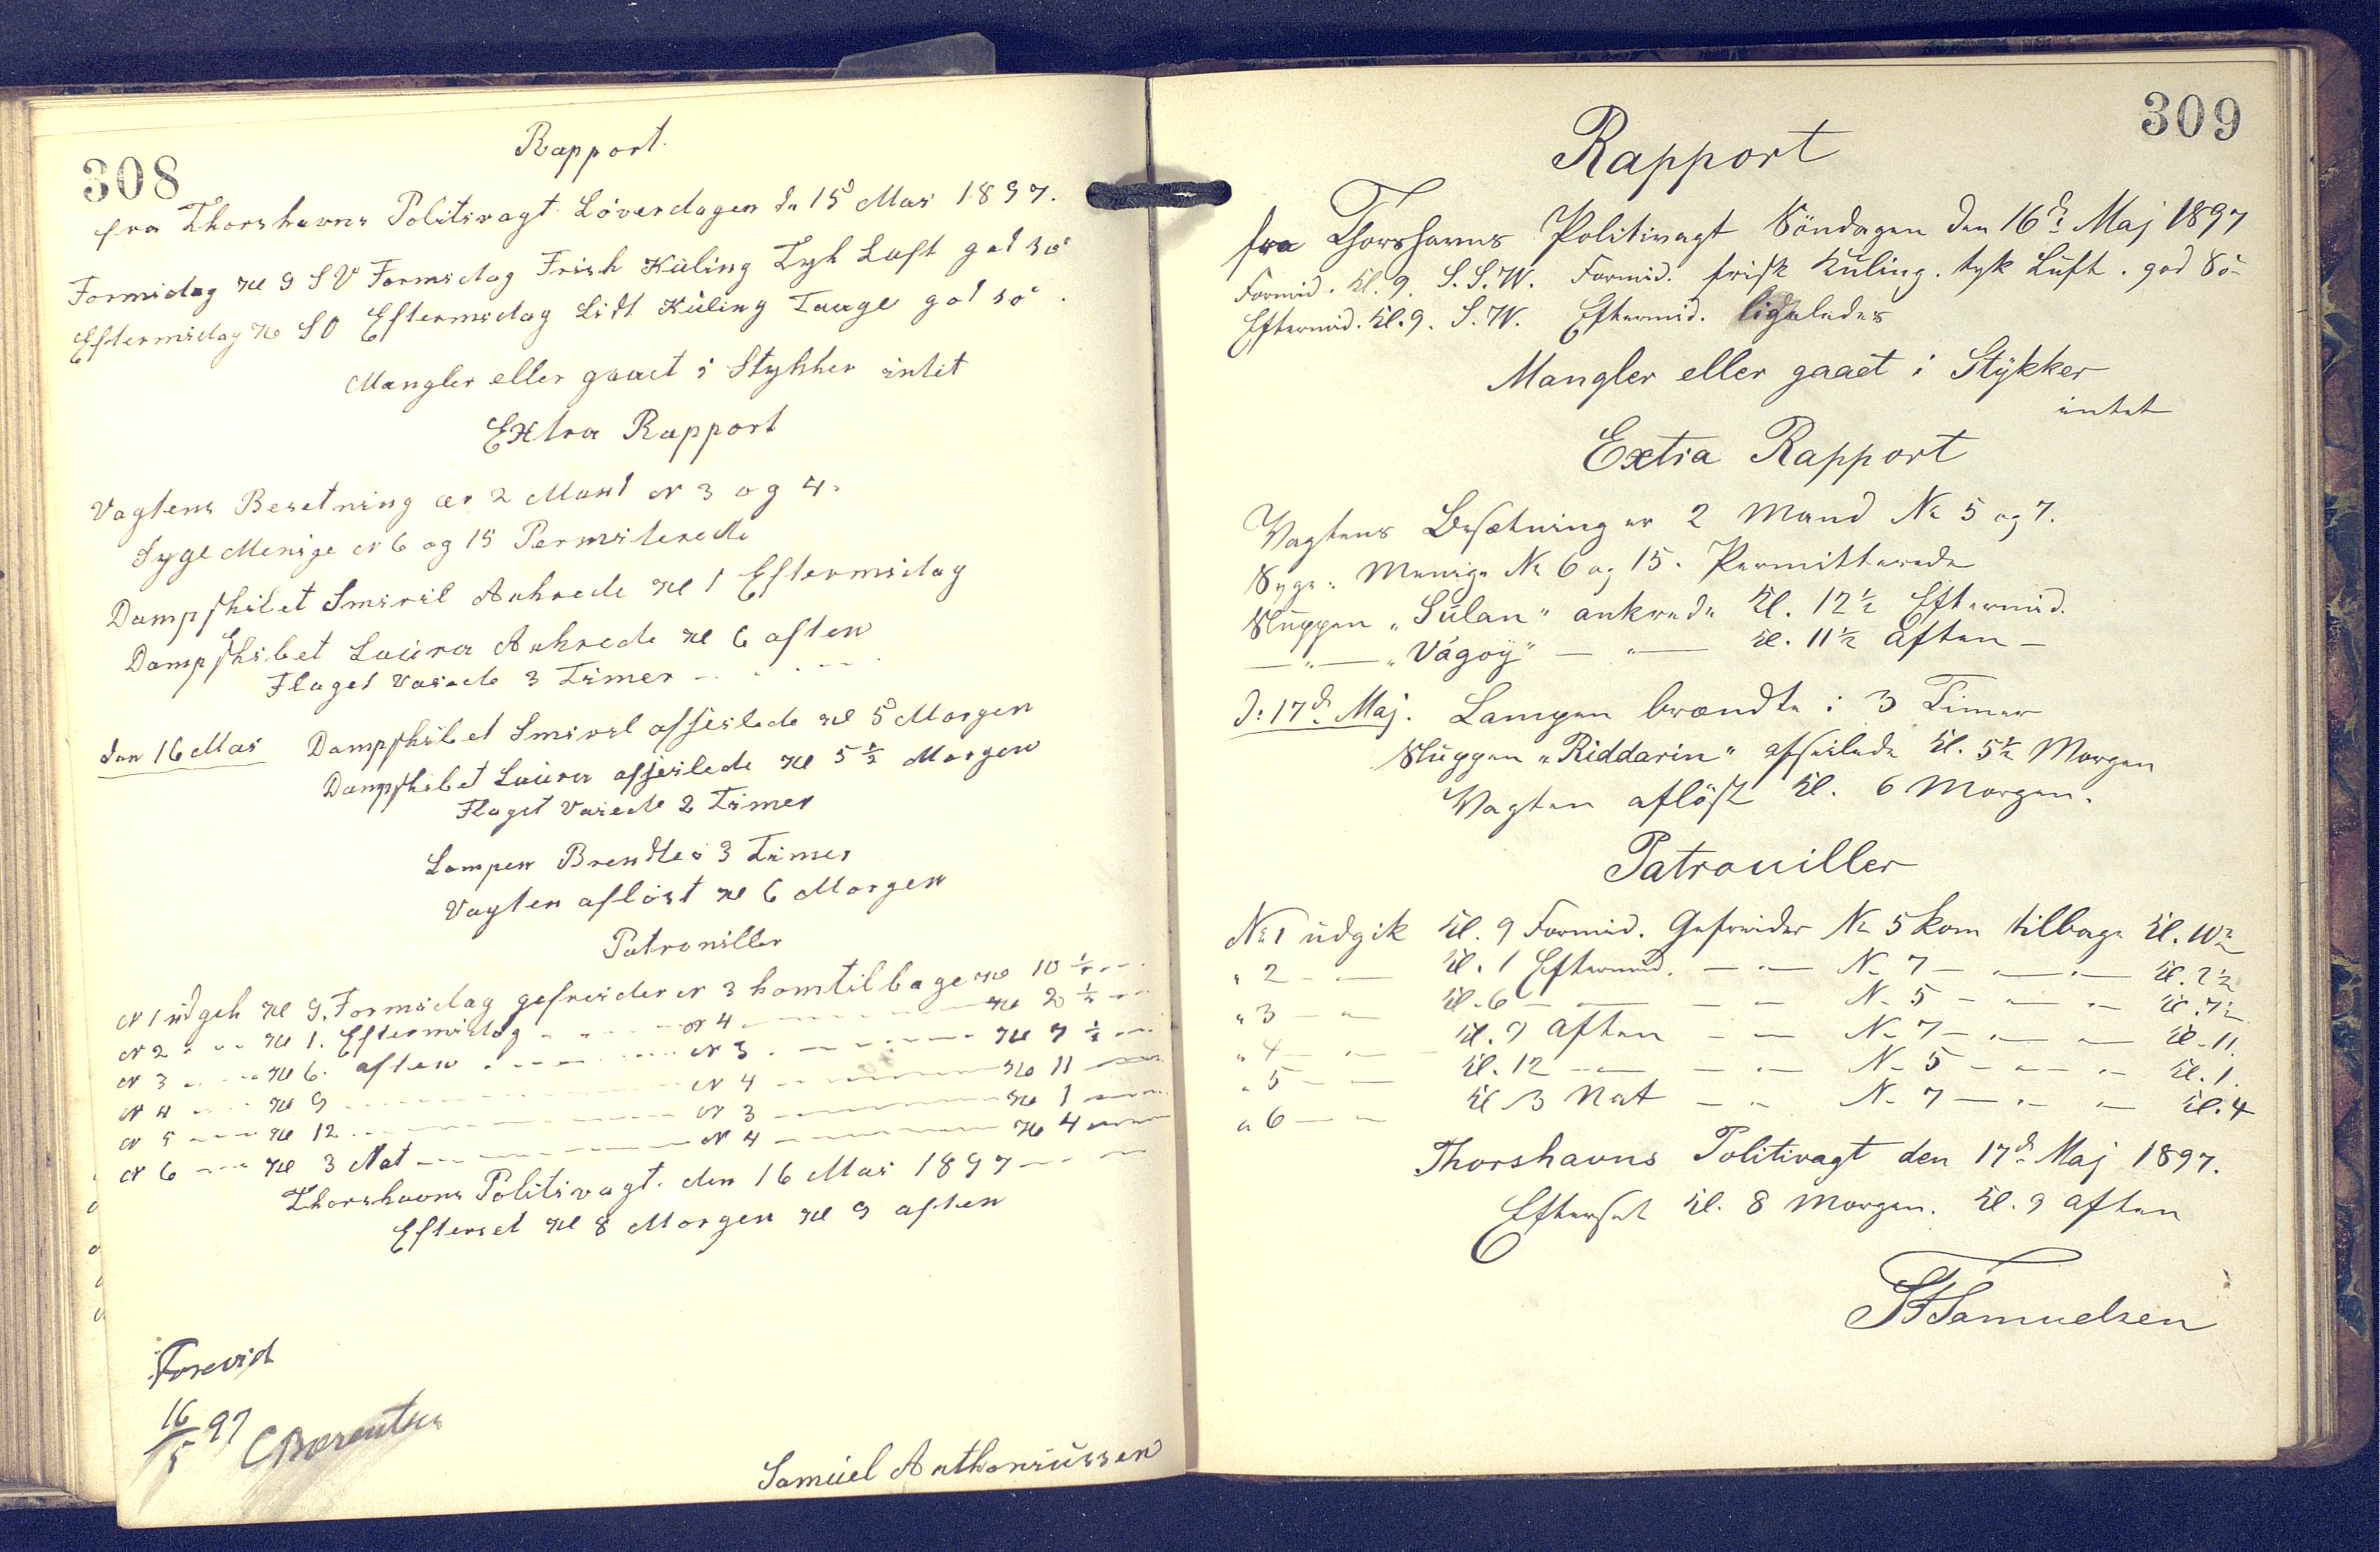 308
Rapport.
fra Thorshavns Politivagt Löverdagen dn 15d Mai 1897.
Formidag Kl 9 SV Formidag Frisk Küling Tyk Luft god sö
Eftermidag Kl SO Eftermidag Lidt Küling Taage god sö.
Mangler eller gaaet i Stykker intet
Extra Rapport
Vagtens Besetning er 2 Mand N 3 og 4.
Syge Menige N 6 og 15 Permiterede
Dampskibet Smiril Ankrede Kl 1 Eftermidag
Dampskibet Laüra Ankrede Kl 6 aften
Flaget Vaiede 3 Timer - - - -
den 16 Mai Dampskibet Smiril afseilede Kl 5 Morgen
Dampskibet Laüra afseilede Kl 5 ½ Morgen
Flaget Vaiede 2 Timer
Lampen Brendte i 3 Timer
Vagten aflöst Kl 6 Morgen
Patroniller
N 1 üdgek Kl 9. Formidag gefreider N 3 komtilbage Kl 10 ½ - -
N 2 - - - Kl 1. Eftermidag - - - - N 4 - - - - Kl 2 ½ - -
N 3 - - - Kl 6. aften - - - - N 3 - - - - Kl 7 ½ - -
N 4 - - - Kl 9 - - - - N 4 - - - - Kl 11 - -
N 5 - - - Kl 12 - - - - N 3 - - - - Kl 1 - -
N 6 - - - Kl 3 Nat - - - - N 4 - - - - Kl 4 - -
Thorshavns Politivagt. den 16 Mai 1897 - - -
Efterset Kl 8 Morgen Kl 9 aften
Forevist
16/5 97 CBærentsen
Samüel Anthoniüssen
309
Rapport
fra Thorshavns Politivagt Söndagen den 16d: Maj 1897
Formid. Kl. 9. S.S.W. Formid. frisk Küling. tyk Lüft. god Sö-
Eftermid. Kl. 9. S.W. Eftermid. ligeledes
Mangler eller gaaet i Stÿkker
intet
Extra Rapport
Vagtens Besætning er 2 Mand No 5 og 7.
Syge: Menige No 6 og 15. Permitterede
Sluppen "Sülan" ankrede Kl. 12½ Eftermid.
— " — "Vágoÿ" — " — Kl. 11½ Aften —
D: 17d: Maj. Lampen brændte i 3 Timer
Sluppen "Riddarin" afseilede Kl. 5½ Morgen
Vagten aflöst Kl. 6 Morgen.
Patrouiller
No 1 üdgik Kl. 9 Formid. Gefreider No 5 kom tilbage Kl. 10½
" 2 — " — Kl. 1 Eftermid. — " — No 7 — " — " — Kl. 2½
" 3 — " — Kl. 6 — " — — " — No 5 — " — " — Kl. 7½
" 4 — " — Kl. 9 Aften — " — No 7 — " — " — Kl. 11.
" 5 — " — Kl. 12 — " — — " — No 5 — " — " — Kl. 1.
" 6 — " — Kl 3 Nat — " — No 7 — " — " — Kl. 4
Thorshavns Politivagt den 17d: Maj 1897.
Efterset Kl. 8 Morgen. Kl. 9 Aften
Samuelsen